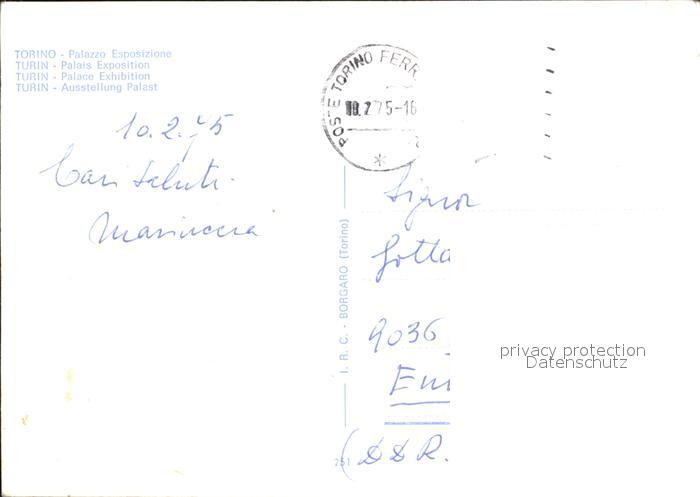 TORINO - Palazzo Esposizione
TURIN - Palais Exposition
TURIN - Palace Exhibition
TURIN - Ausstellung Palast
POSTE TORINO FERR
10.2.75-16
10.2.75
Cari saluti.
Mariuccia
I. R. C. - BORGARO (Torino)
251
Signor
Gotta
9036
(DDR.
privacy protection
Datenschutz